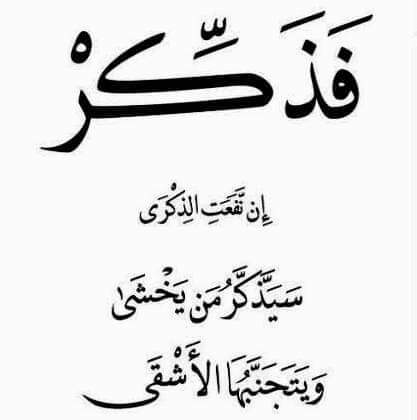 فَذَكِّرْ
إِن نَّفَعَتِ الذِكْرَى
سَيَذَّكَّرُ مَن يَخْشَىٰ
وَيَتَجَنَّبُهَا الأَشْقَى